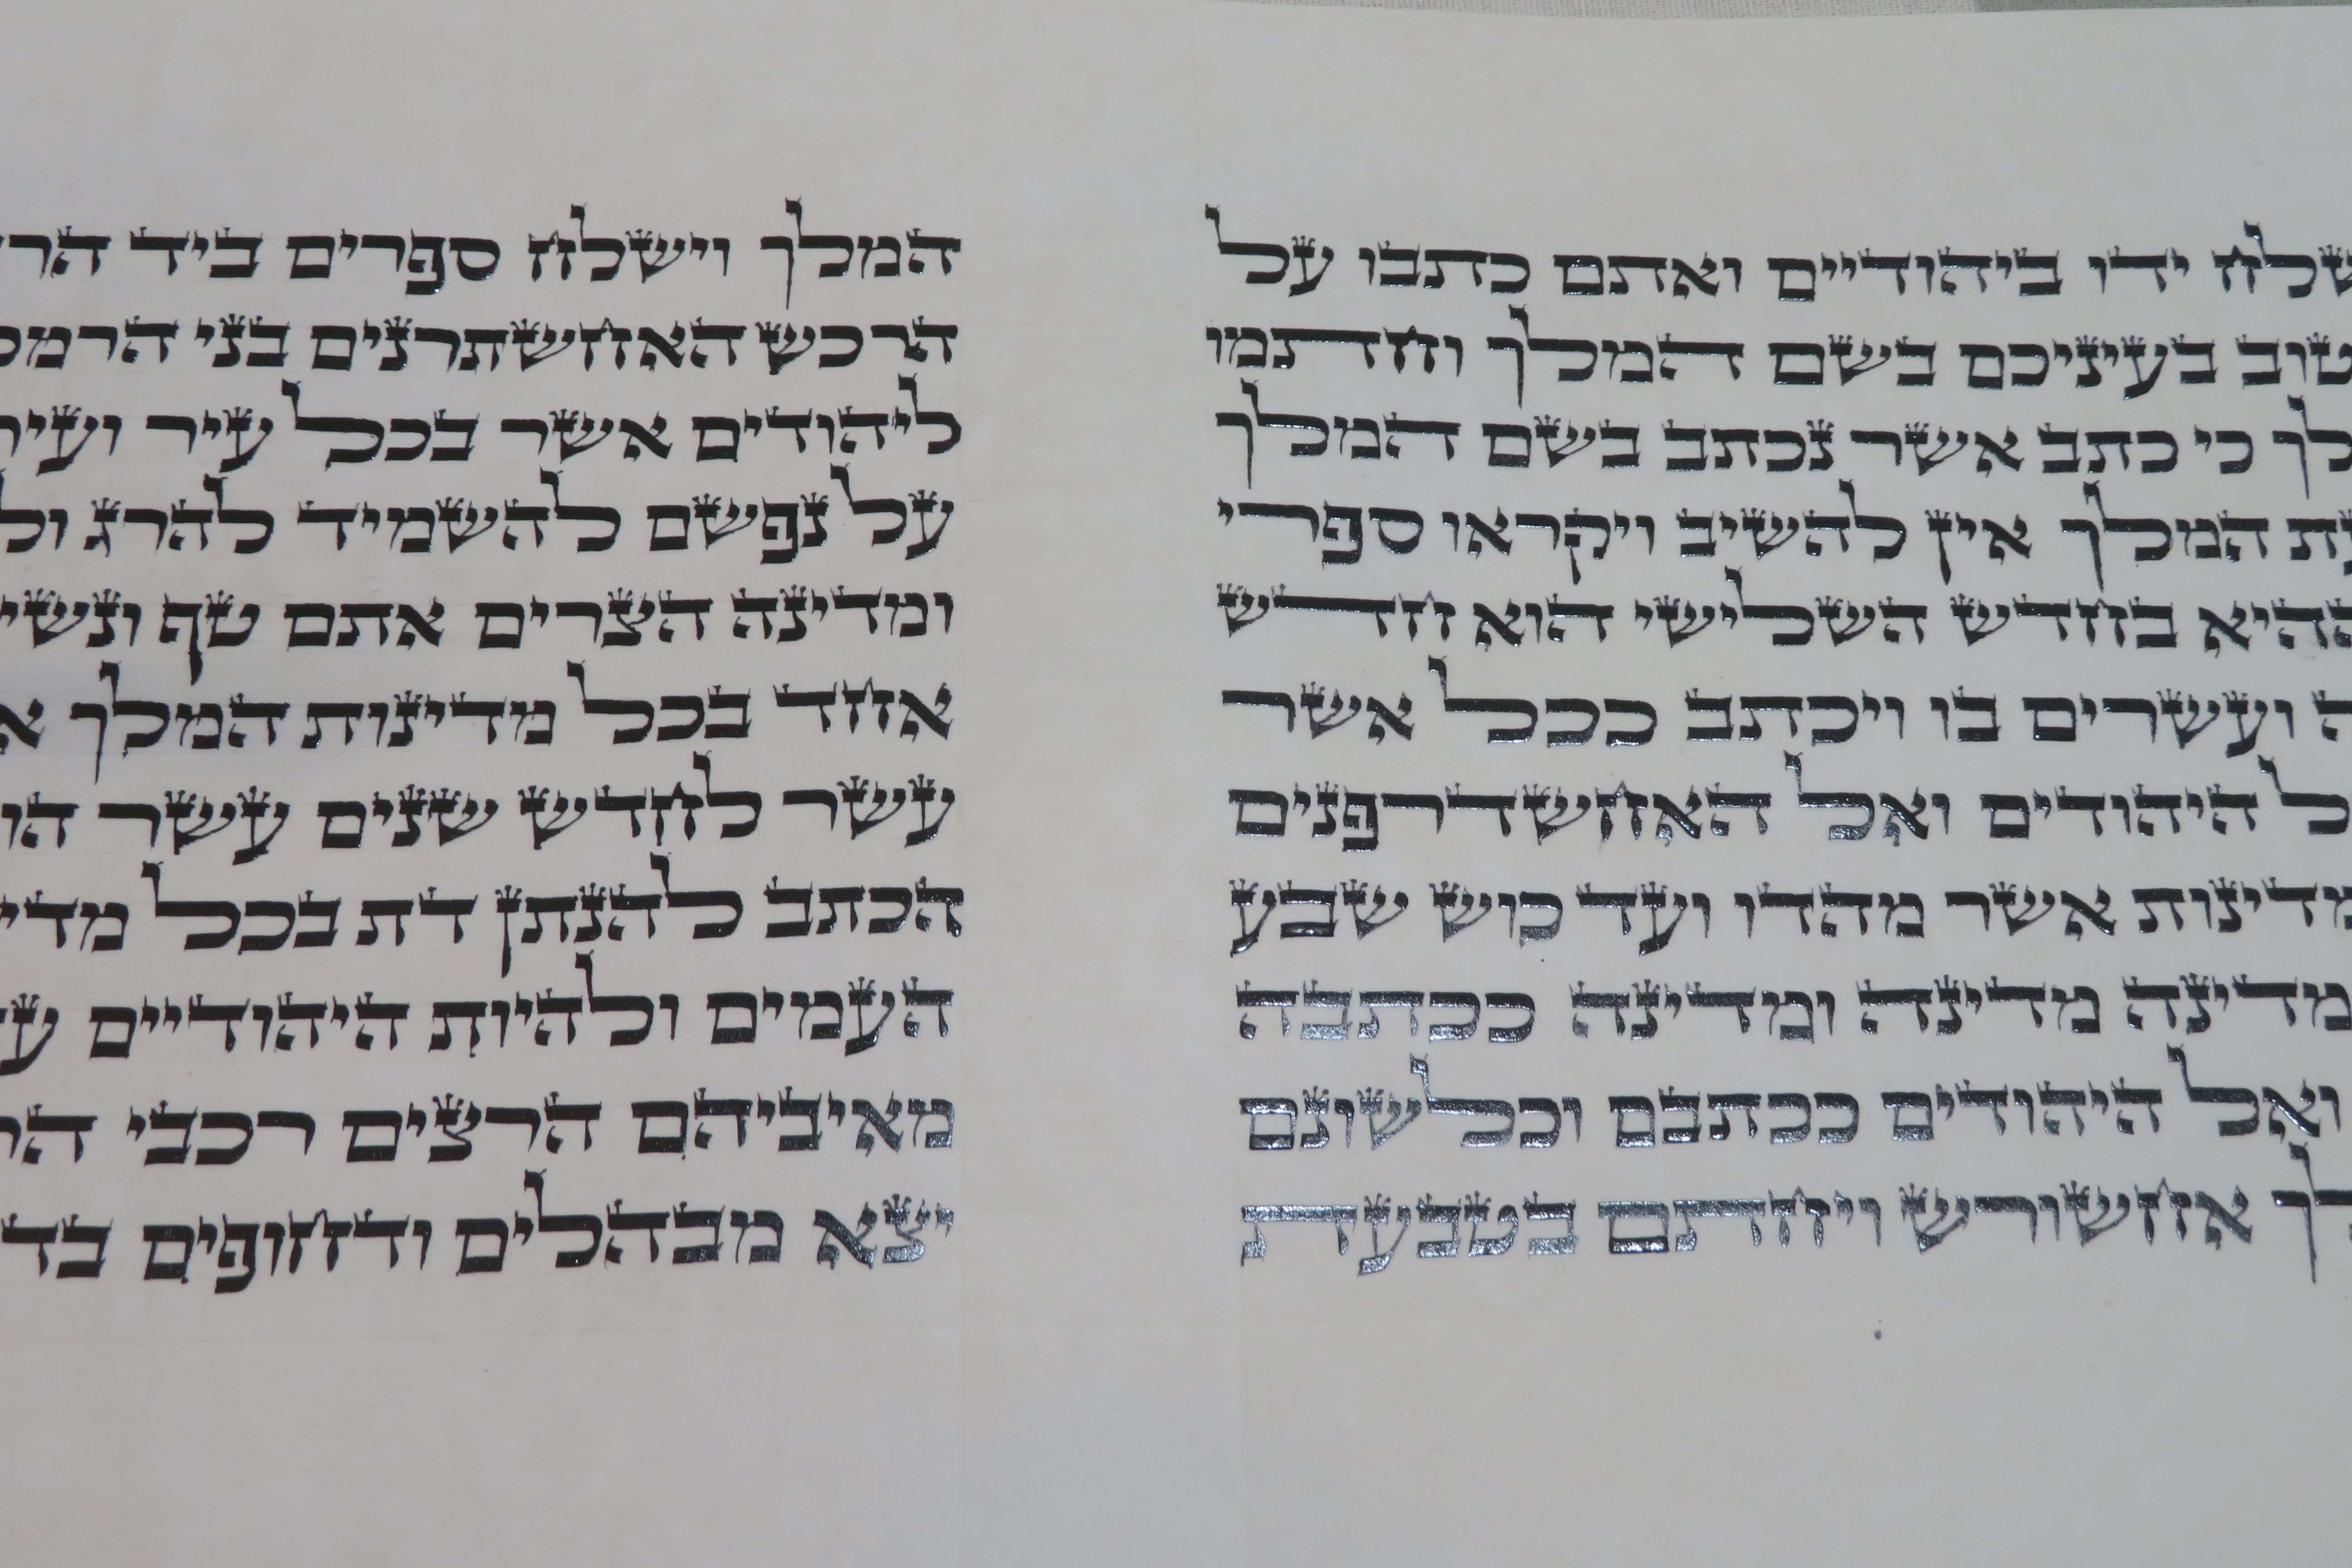 שלח ידו ביהודיים ואתם כתבו על
טוב בעיניכם בשם המלך וחתמו
לך כי כתב אשר נכתב בשם המלך
ת המלך אין להשיב ויקראו ספרי
ההיא בחדש השלישי הוא חדש
ה ועשרים בו ויכתב ככל אשר
ל היהודים ואל האחשדרפנים
מדינות אשר מהדו ועד כוש שבע
מדינה מדינה ומדינה ככתבה
ואל היהודים ככתבם וכלשונם
לך אחשורש ויחתם בטבעת
המלך וישלח ספרים ביד הר
הרכש האחשתרנים בני הרמכ
ליהודים אשר בכל עיר ועיר
על נפשם להשמיד להרג ול
ומדינה הצרים אתם טף ונשי
אחד בכל מדינות המלך א
עשר לחדש שנים עשר הו
הכתב להנתן דת בכל מדי
העמים ולהיות היהודיים ע
מאיביהם הרצים רכבי הר
יצא מבהלים ודחופים בד